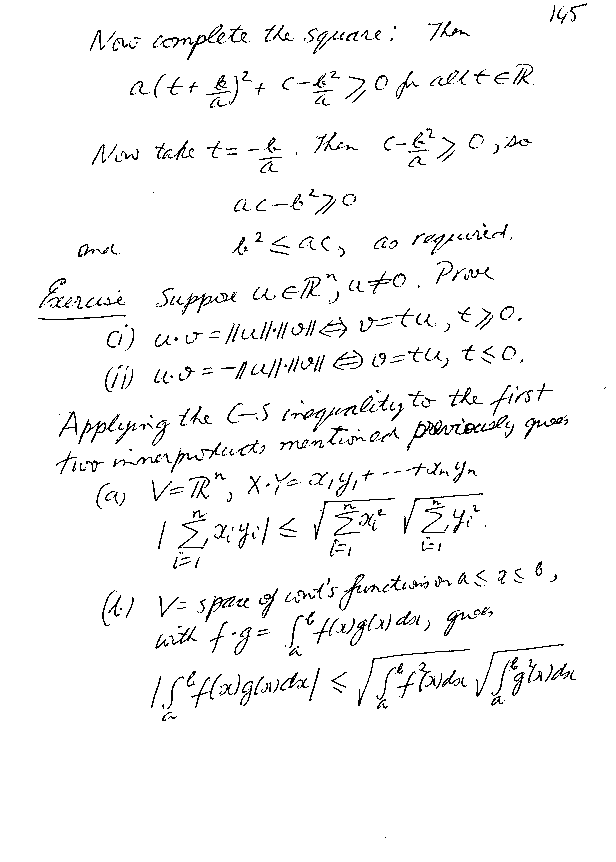 145
Now complete the square: Then
a(t + b/a)² + c - b²/a ⩾ 0 for all t ∈ ℝ
Now take t = -b/a. Then c - b²/a ⩾ 0, so
ac - b² ⩾ 0
and b² ≤ ac, as required.
Exercise Suppose u ∈ ℝⁿ, u ≠ 0. Prove
(i) u·v = ||u||·||v|| ⇔ v = tu, t ⩾ 0.
(ii) u·v = -||u||·||v|| ⇔ v = tu, t ≤ 0.
Applying the C-S inequality to the first
two inner products mentioned previously gives
(a) V = ℝⁿ, X·Y = x₁y₁ + ··· + xₙyₙ
|∑ⁿᵢ₌₁ xᵢyᵢ| ≤ √(∑ⁿᵢ₌₁ xᵢ²) √(∑ⁿᵢ₌₁ yᵢ²).
(b) V = space of cont's functions on a ≤ x ≤ b,
with f·g = ∫ₐᵇ f(x)g(x)dx, gives
|∫ₐᵇ f(x)g(x)dx| ≤ √(∫ₐᵇ f²(x)dx) √(∫ₐᵇ g²(x)dx)